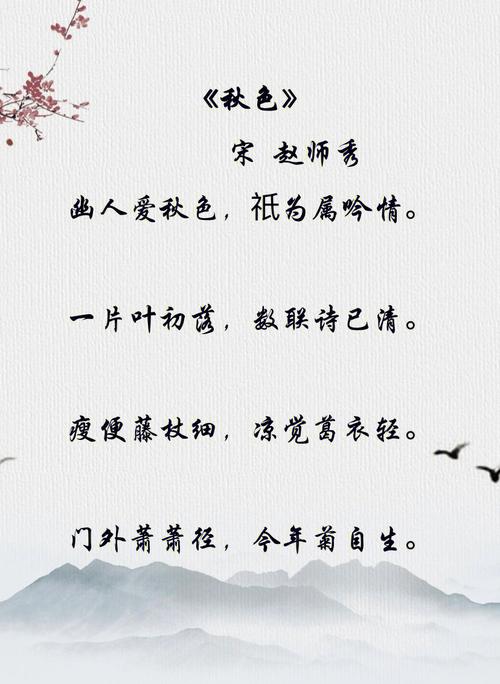 《秋色》
宋 赵师秀
幽人爱秋色，祇为属吟情。
一片叶初落，数联诗已清。
瘦便藤杖细，凉觉葛衣轻。
门外萧萧径，今年菊自生。